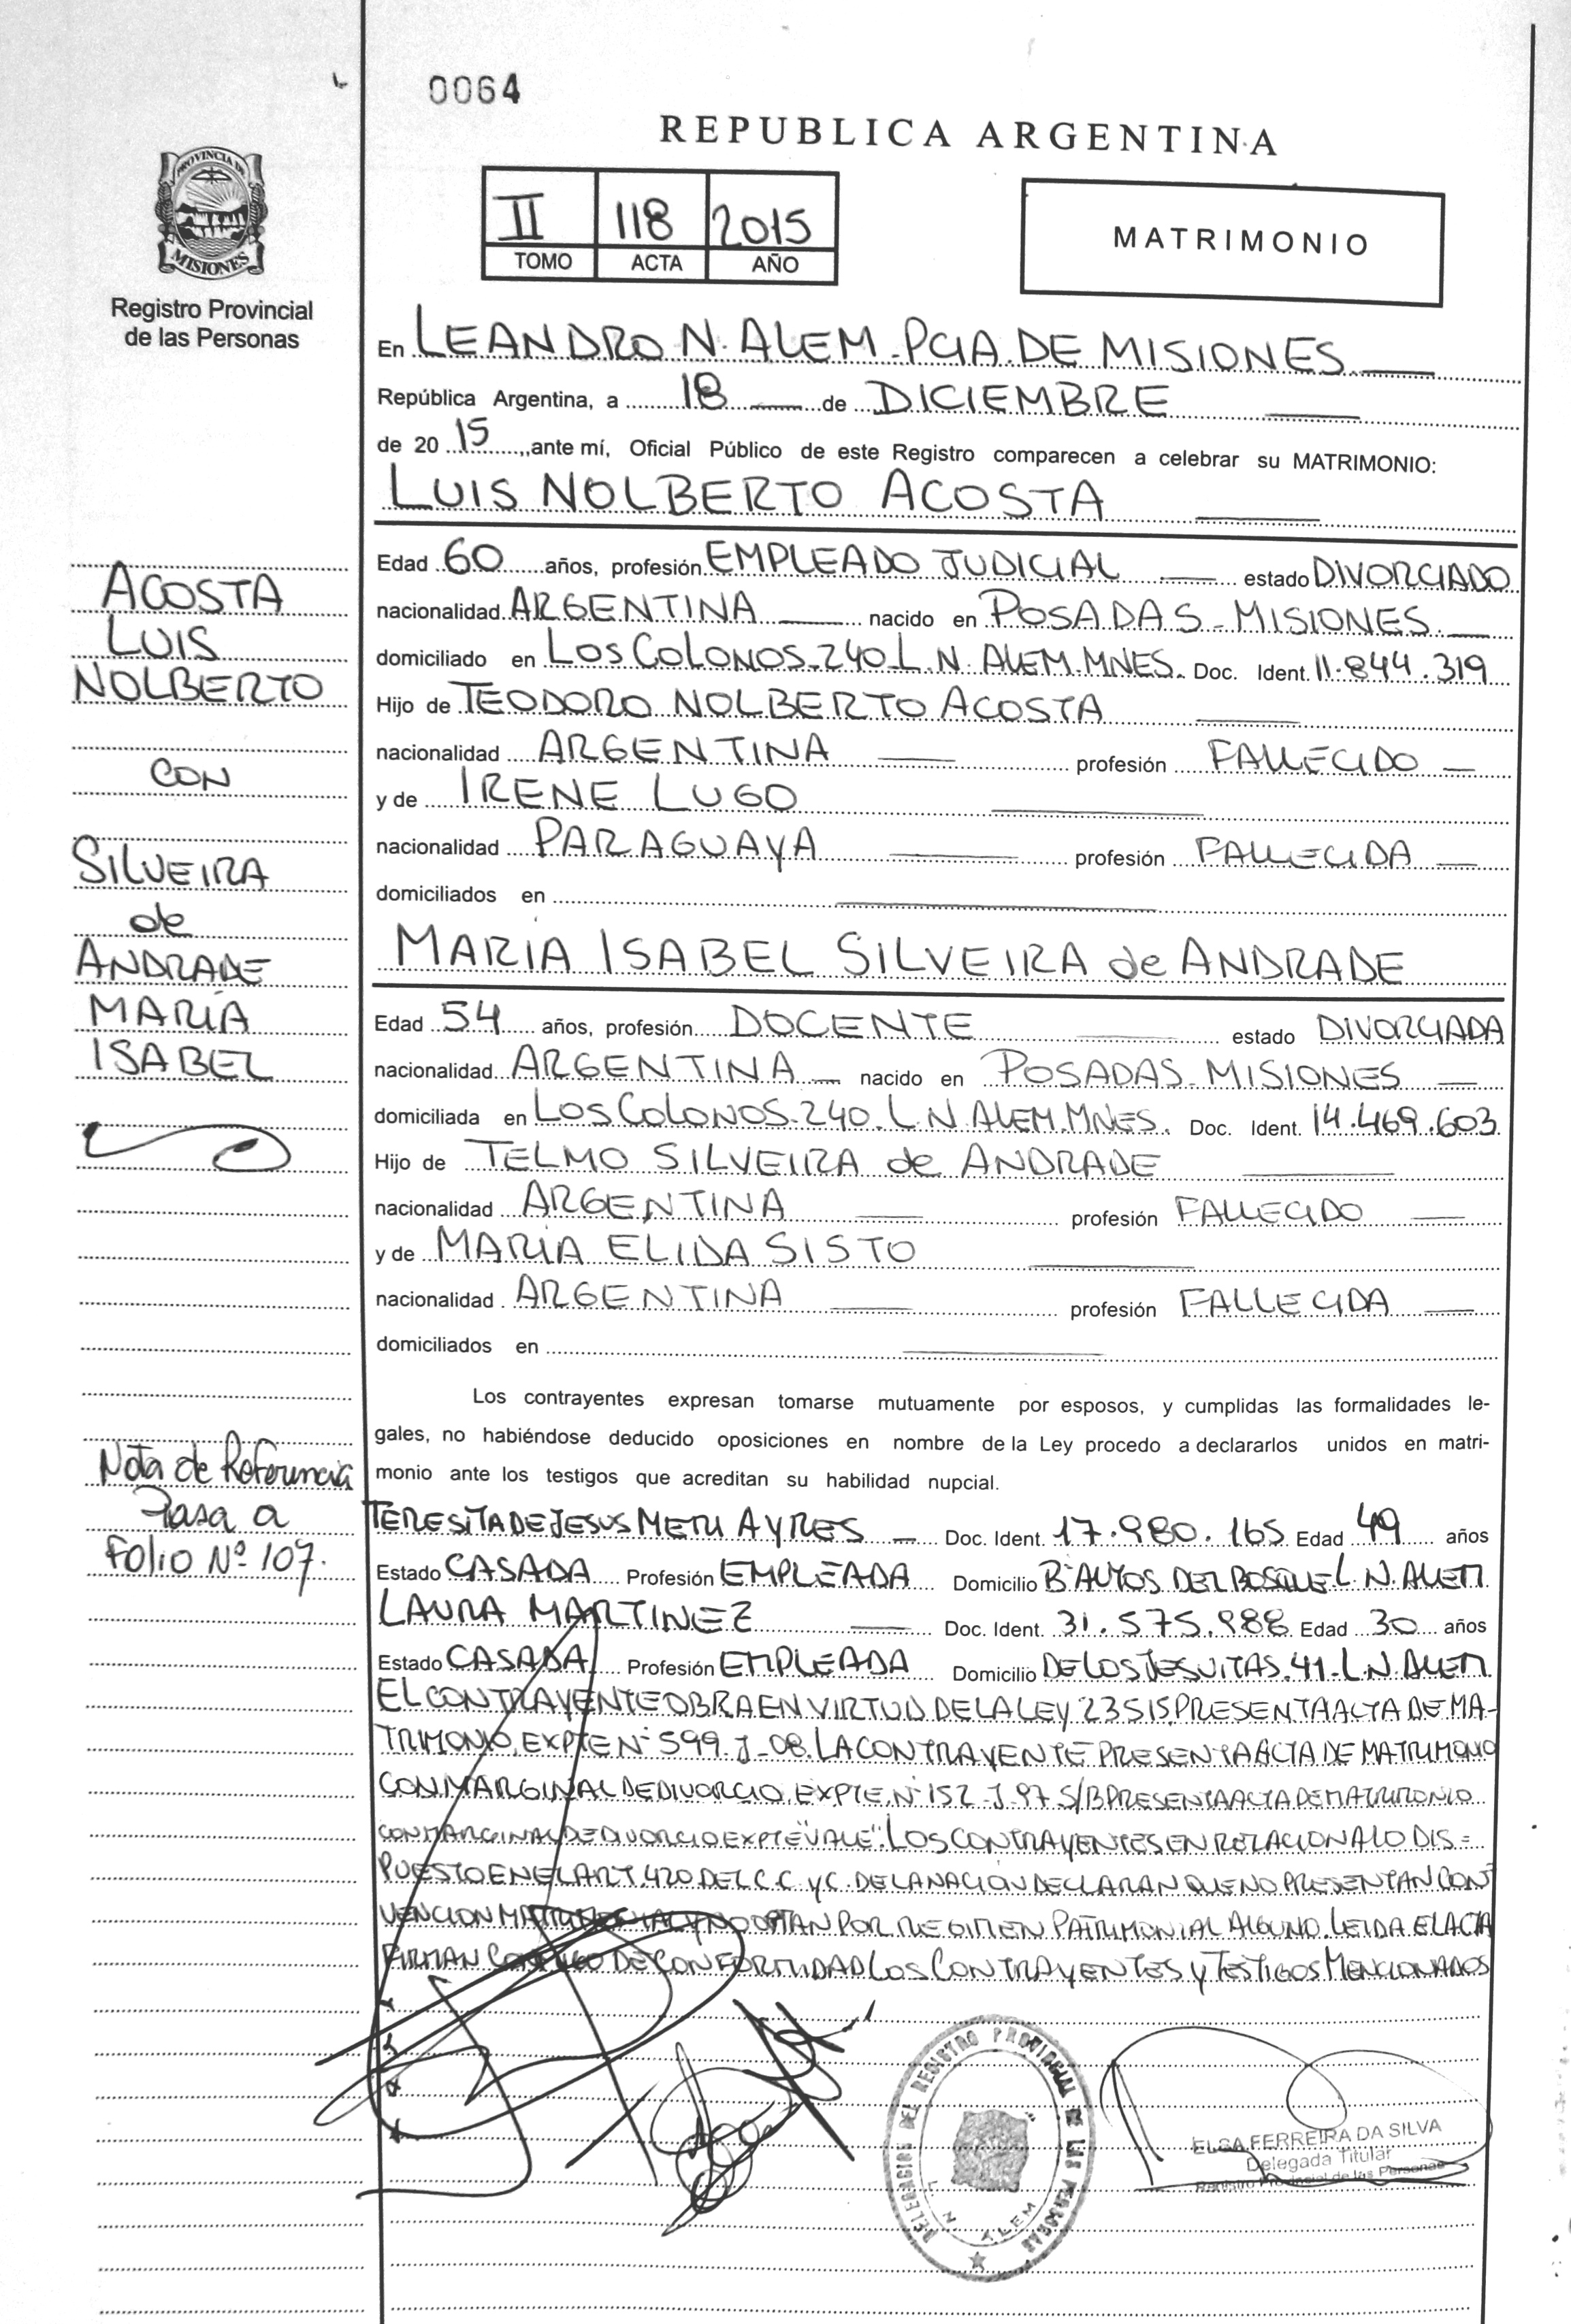 0064
REPUBLICA ARGENTINA
PROVINCIA DE
MISIONES
Registro Provincial
de las Personas
II 118 2015
TOMO ACTA AÑO
MATRIMONIO
En LEANDRO N. ALEM. PCIA. DE MISIONES
República Argentina, a 18 de DICIEMBRE
de 20 15, ante mí, Oficial Público de este Registro comparecen a celebrar su MATRIMONIO:
LUIS NOLBERTO ACOSTA
Edad 60 años, profesión EMPLEADO JUDICIAL estado DIVORCIADO
nacionalidad ARGENTINA nacido en POSADAS - MISIONES.
domiciliado en LOS COLONOS. 240 L. N. ALEM. MNES. Doc. Ident. 11.844.319
Hijo de TEODORO NOLBERTO ACOSTA
nacionalidad ARGENTINA profesión FALLECIDO
y de IRENE LUGO
nacionalidad PARAGUAYA profesión FALLECIDA
domiciliados en
MARIA ISABEL SILVEIRA de ANDRADE
Edad 54 años, profesión DOCENTE estado DIVORCIADA
nacionalidad ARGENTINA nacido en POSADAS - MISIONES
domiciliada en LOS COLONOS. 240. L N ALEM. MNES. Doc. Ident. 14.469.603
Hijo de TELMO SILVEIRA de ANDRADE
nacionalidad ARGENTINA profesión FALLECIDO
y de MARIA ELIDA SISTO
nacionalidad ARGENTINA profesión FALLECIDA
domiciliados en
Los contrayentes expresan tomarse mutuamente por esposos, y cumplidas las formalidades le-
gales, no habiéndose deducido oposiciones en nombre de la Ley procedo a declararlos unidos en matri-
monio ante los testigos que acreditan su habilidad nupcial.
TERESITA DE JESUS AYRES Doc. Ident. 17.980.165 Edad 49 años
Estado CASADA Profesión EMPLEADA Domicilio Bº ALTOS DEL BOSQUE L. N. ALEM
LAURA MARTINEZ Doc. Ident. 31.575.988 Edad 30 años
Estado CASADA Profesión EMPLEADA Domicilio DE LOS JESUITAS. 41 - L. N. ALEM
EL CONTRAYENTE OBRA EN VIRTUD DE LA LEY 23515, PRESENTA ACTA DE MA-
TRIMONIO, EXPTE Nº 599. J - 08. LA CONTRAYENTE PRESENTA ACTA DE MATRIMONIO
CON MARGINAL DE DIVORCIO, EXPTE. Nº 152 - J. 97 S/B PRESENTA ACTA DE MATRIMONIO
CON MARGINAL DE DIVORCIO EXPTE "VALE". LOS CONTRAYENTES EN RELACION A LO DIS-
PUESTO EN EL ART. 420 DEL C.C. y C. DE LA NACION DECLARAN QUE NO PRESENTAN CON-
VENCION MATRIMONIAL Y NO OPTAN POR REGIMEN PATRIMONIAL ALGUNO. LEIDA EL ACTA
FIRMAN CONMIGO DE CONFORMIDAD LOS CONTRAYENTES y TESTIGOS MENCIONADOS
ACOSTA
LUIS
NOLBERTO
CON
SILVEIRA
de
ANDRADE
MARÍA
ISABEL
Nota de Referencia
Pasa a
Folio Nº 107.
DELEGACION DEL REGISTRO PROVINCIAL DE LAS PERSONAS
L. N. ALEM
ELSA FERREIRA DA SILVA
Delegada Titular
Registro Provincial de las Personas